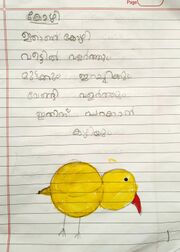 Page:
കോഴി
ഇതാണ് കോഴി
വീട്ടിൽ വളർത്തും
മുട്ടക്കും ഇറച്ചിക്കും
വേണ്ടി വളർത്തും
ഇതിന് പറക്കാൻ
കഴിയും